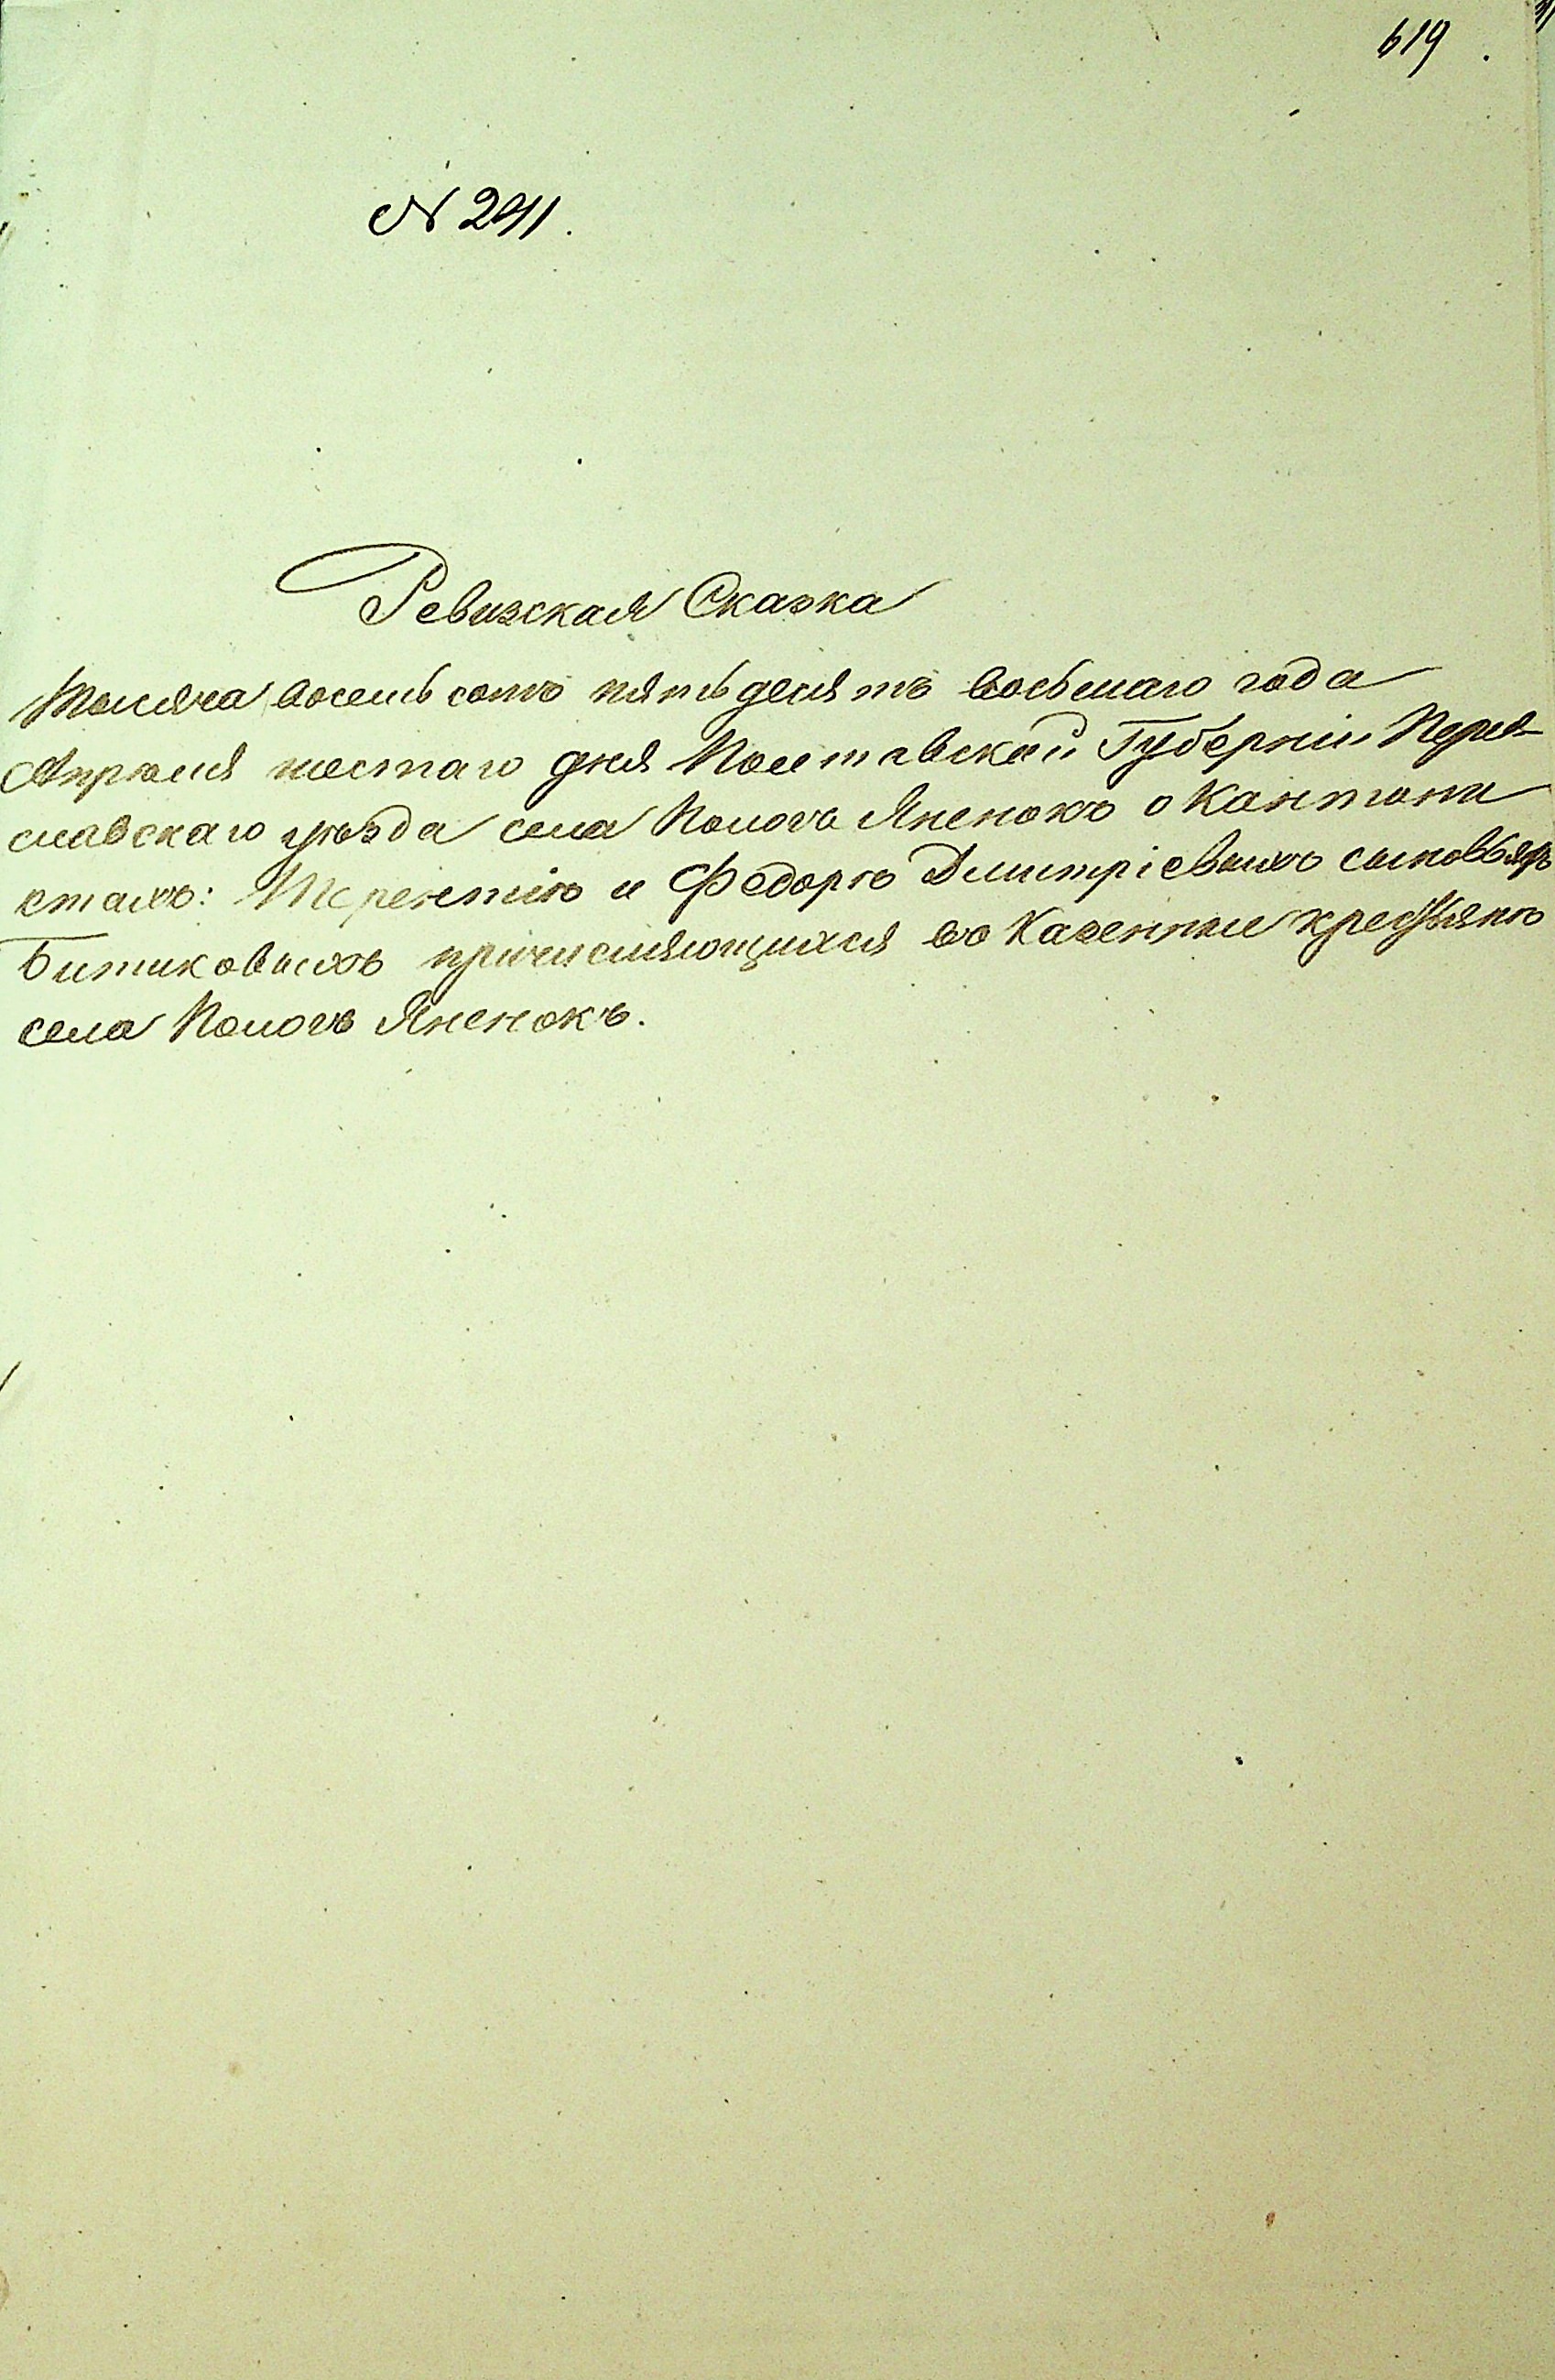 619
№ 241.
Ревизская Сказка
Тысяча восемь сотъ пятьдесятъ восьмаго года
Апрѣля шестаго дня Полтавской Губерніи Перея-
славскаго уѣзда села Пологъ Яненокъ о Кантони
стахъ: Терентію и Федорѣ Дмитріевыхъ сыновьяхъ
Битиковыхъ причисляющихся въ Казенные крестьянѣ
села Пологъ Яненокъ.